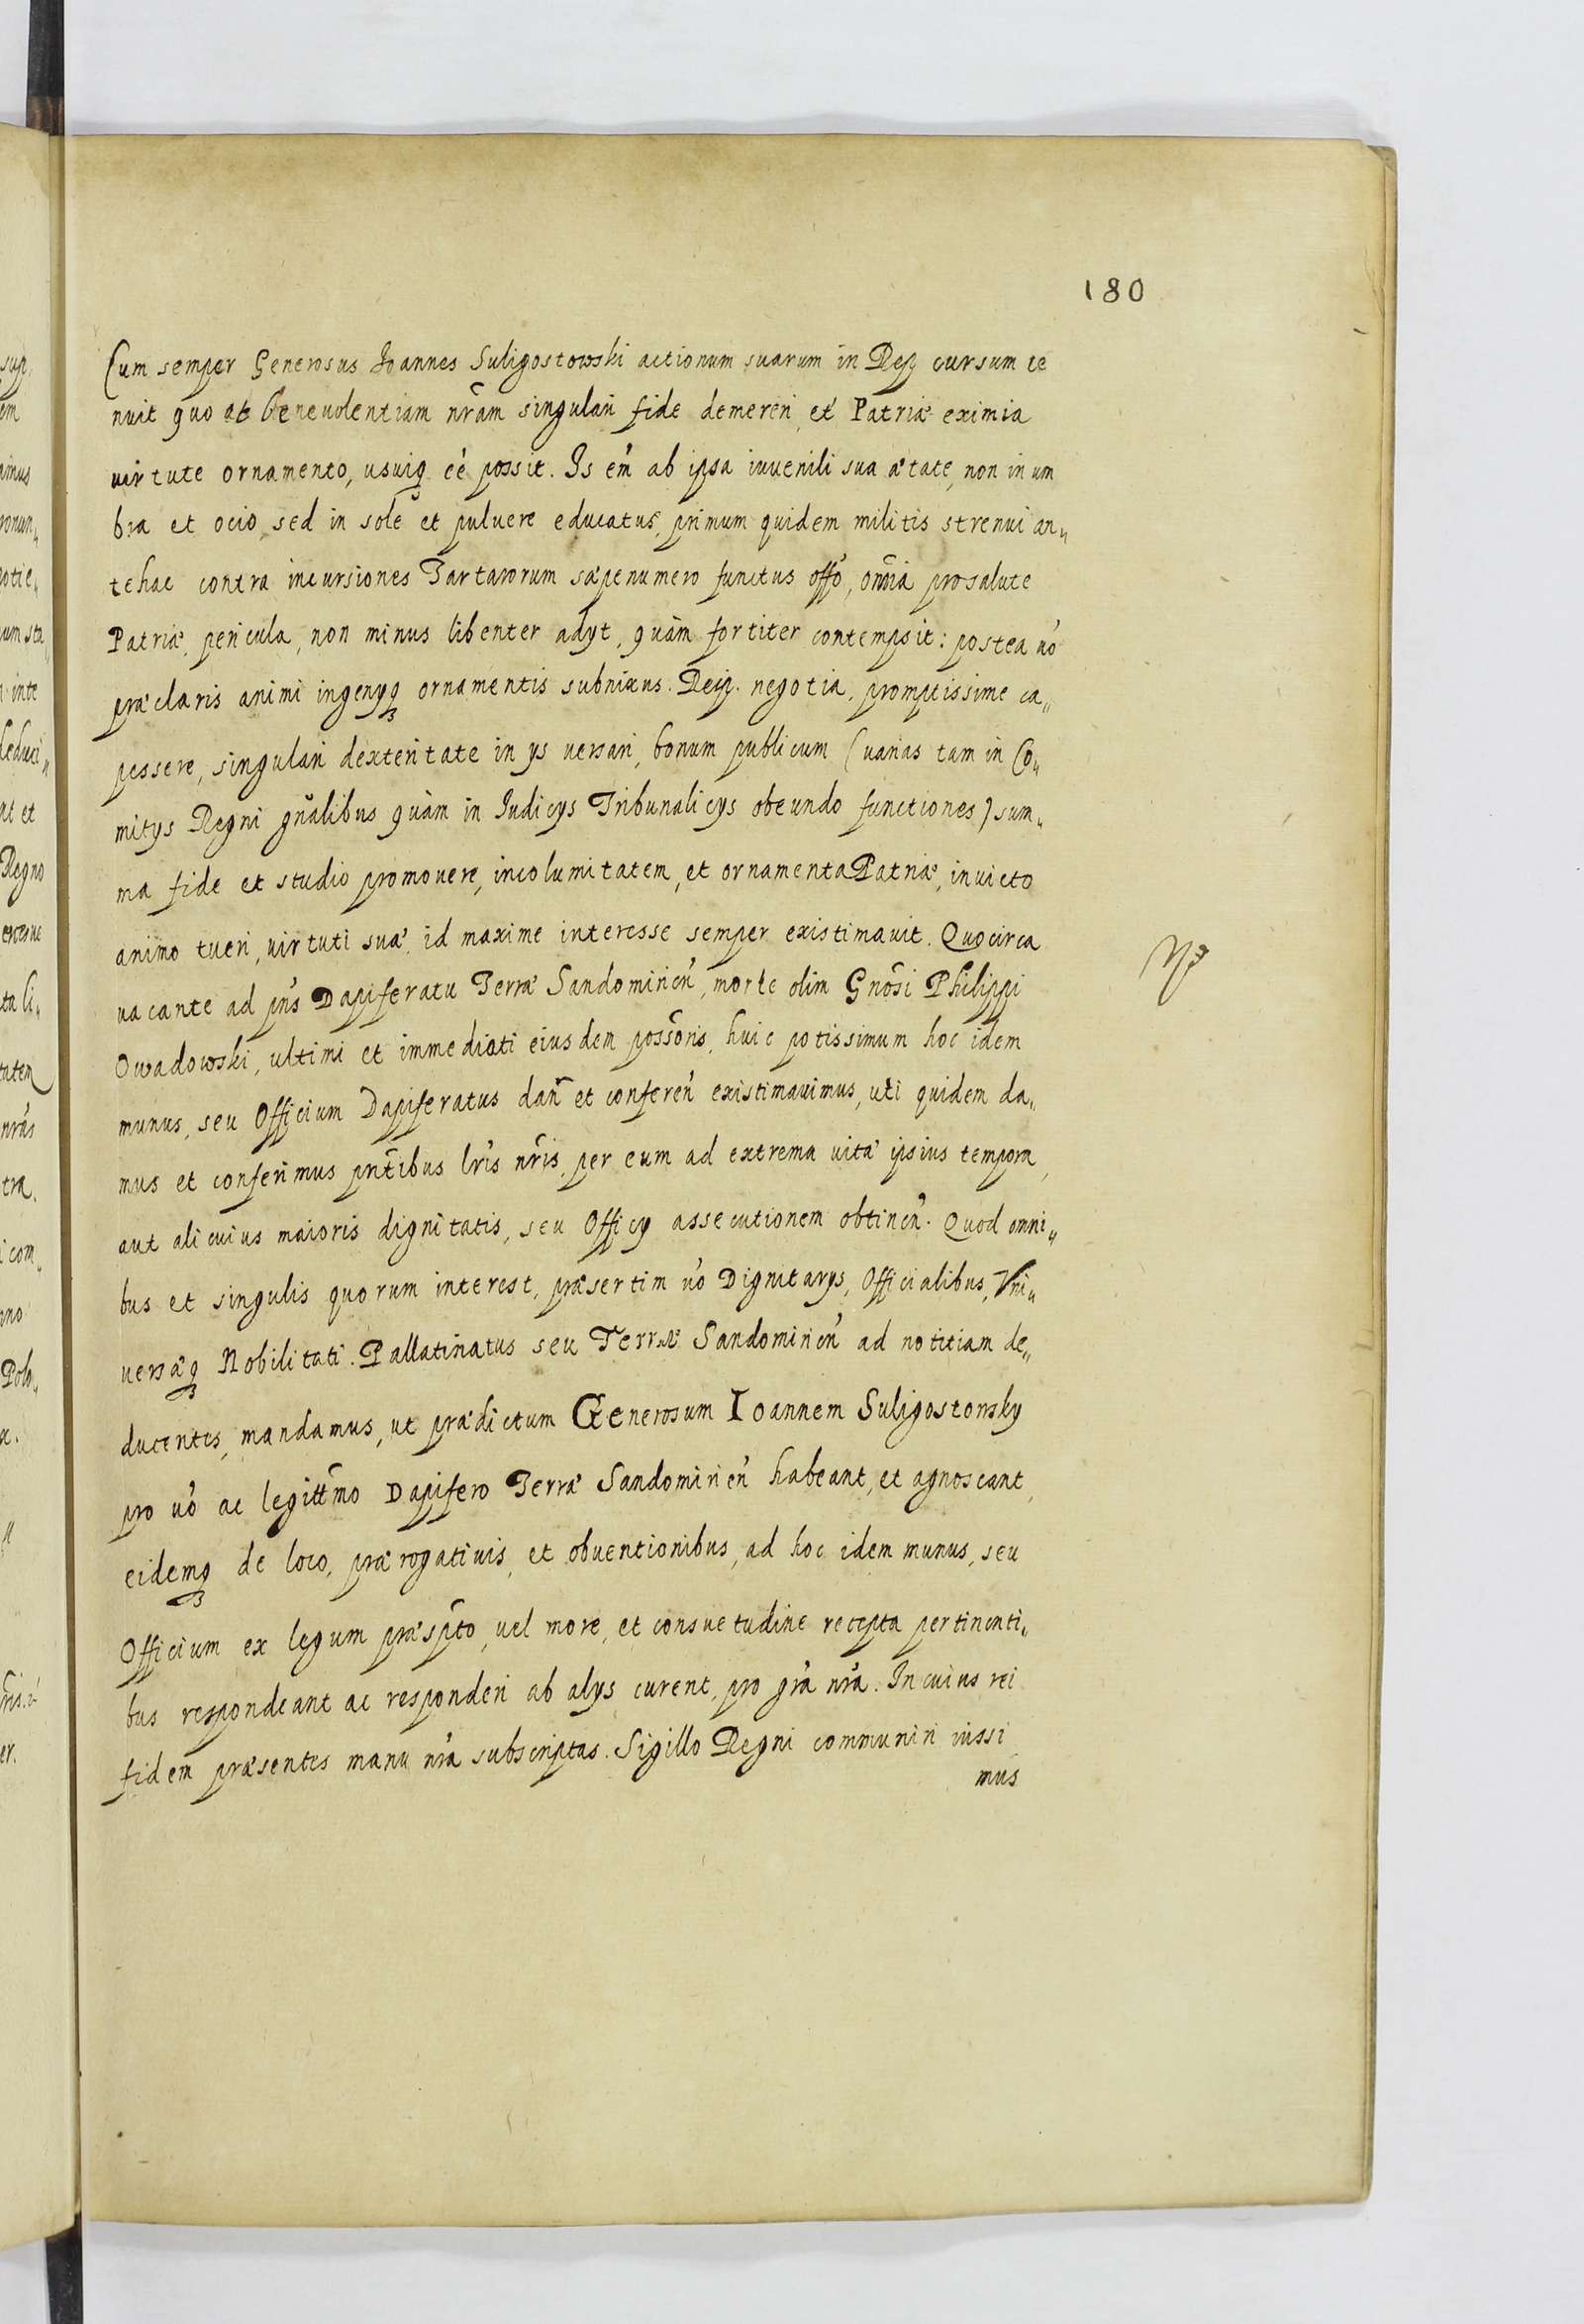 180
Cum semper Generosus Joannes Suligostowski actionum suarum in Rep cursum te
nuit quo et beneuolentiam nr̃am singulari fide demereri, et Patriæ eximia
uirtute ornamento, usuiq cẽ possit. Is em̃ ab ipsa iuuenili sua ætate, non in um
bra et ocio, sed in sole et puluere educatus, primum quidem militis strenui an„
tehac contra incursiones Tartarorum sæpenumero functus offõ, om̃ia pro salute
Patriæ, pericula, non minus libenter adyt, quàm fortiter contempsit: postea uõ
præclaris animi ingenyq ornamentis subnixus. Reip. negotia, promptissime ca„
pessere, singulari dexteritate in ys uersari, bonum publicum (uarias tam in Co„
mitys Regni gñalibus quàm in Iudicys Tribunalicys obeundo functiones) sum„
ma fide et studio promouere, incolumitatem, et ornamenta Patriæ, inuicto
animo tueri, uirtuti suæ id maxime interesse semper existimauit. Quocirca
uacante ad pñs Dapiferatu Terræ Sandomirien̄, morte olim Gnõsi Philippi
Owadowski, ultimi et immediati eiusdem possõris, huic potissimum hoc idem
munus, seu Officium Dapiferatus dan̄ et conferen̄ existimauimus, uti quidem da„
mus et conferimus pñtibus lr̃is nr̃is, per eum ad extrema uitæ ipsius tempora,
aut alicuius maioris dignitatis, seu Officy assecutionem obtinen̄. Quod omni„
bus et singulis quorum interest, præsertim uõ Dignitarys, Officialibus, Vni„
uersæq Nobilitati. Pallatinatus seu Terræ Sandomirien̄ ad notitiam de„
ducentes, mandamus, ut prædictum Generosum Ioannem Suligostowsky
pro uõ ac legittm̃o Dapifero Terræ Sandomirien̄ habeant, et agnoscant,
eidemq de loco, prærogatiuis, et obuentionibus, ad hoc idem munus, seu
Officium ex legum præsp̃to, uel more, et consuetudine recepta pertinenti„
bus respondeant ac responderi ab alys curent, pro gr̃a nr̃a. In cuius rei
fidem præsentes manu nr̃a subscriptas. Sigillo Regni communiri iussi
mus